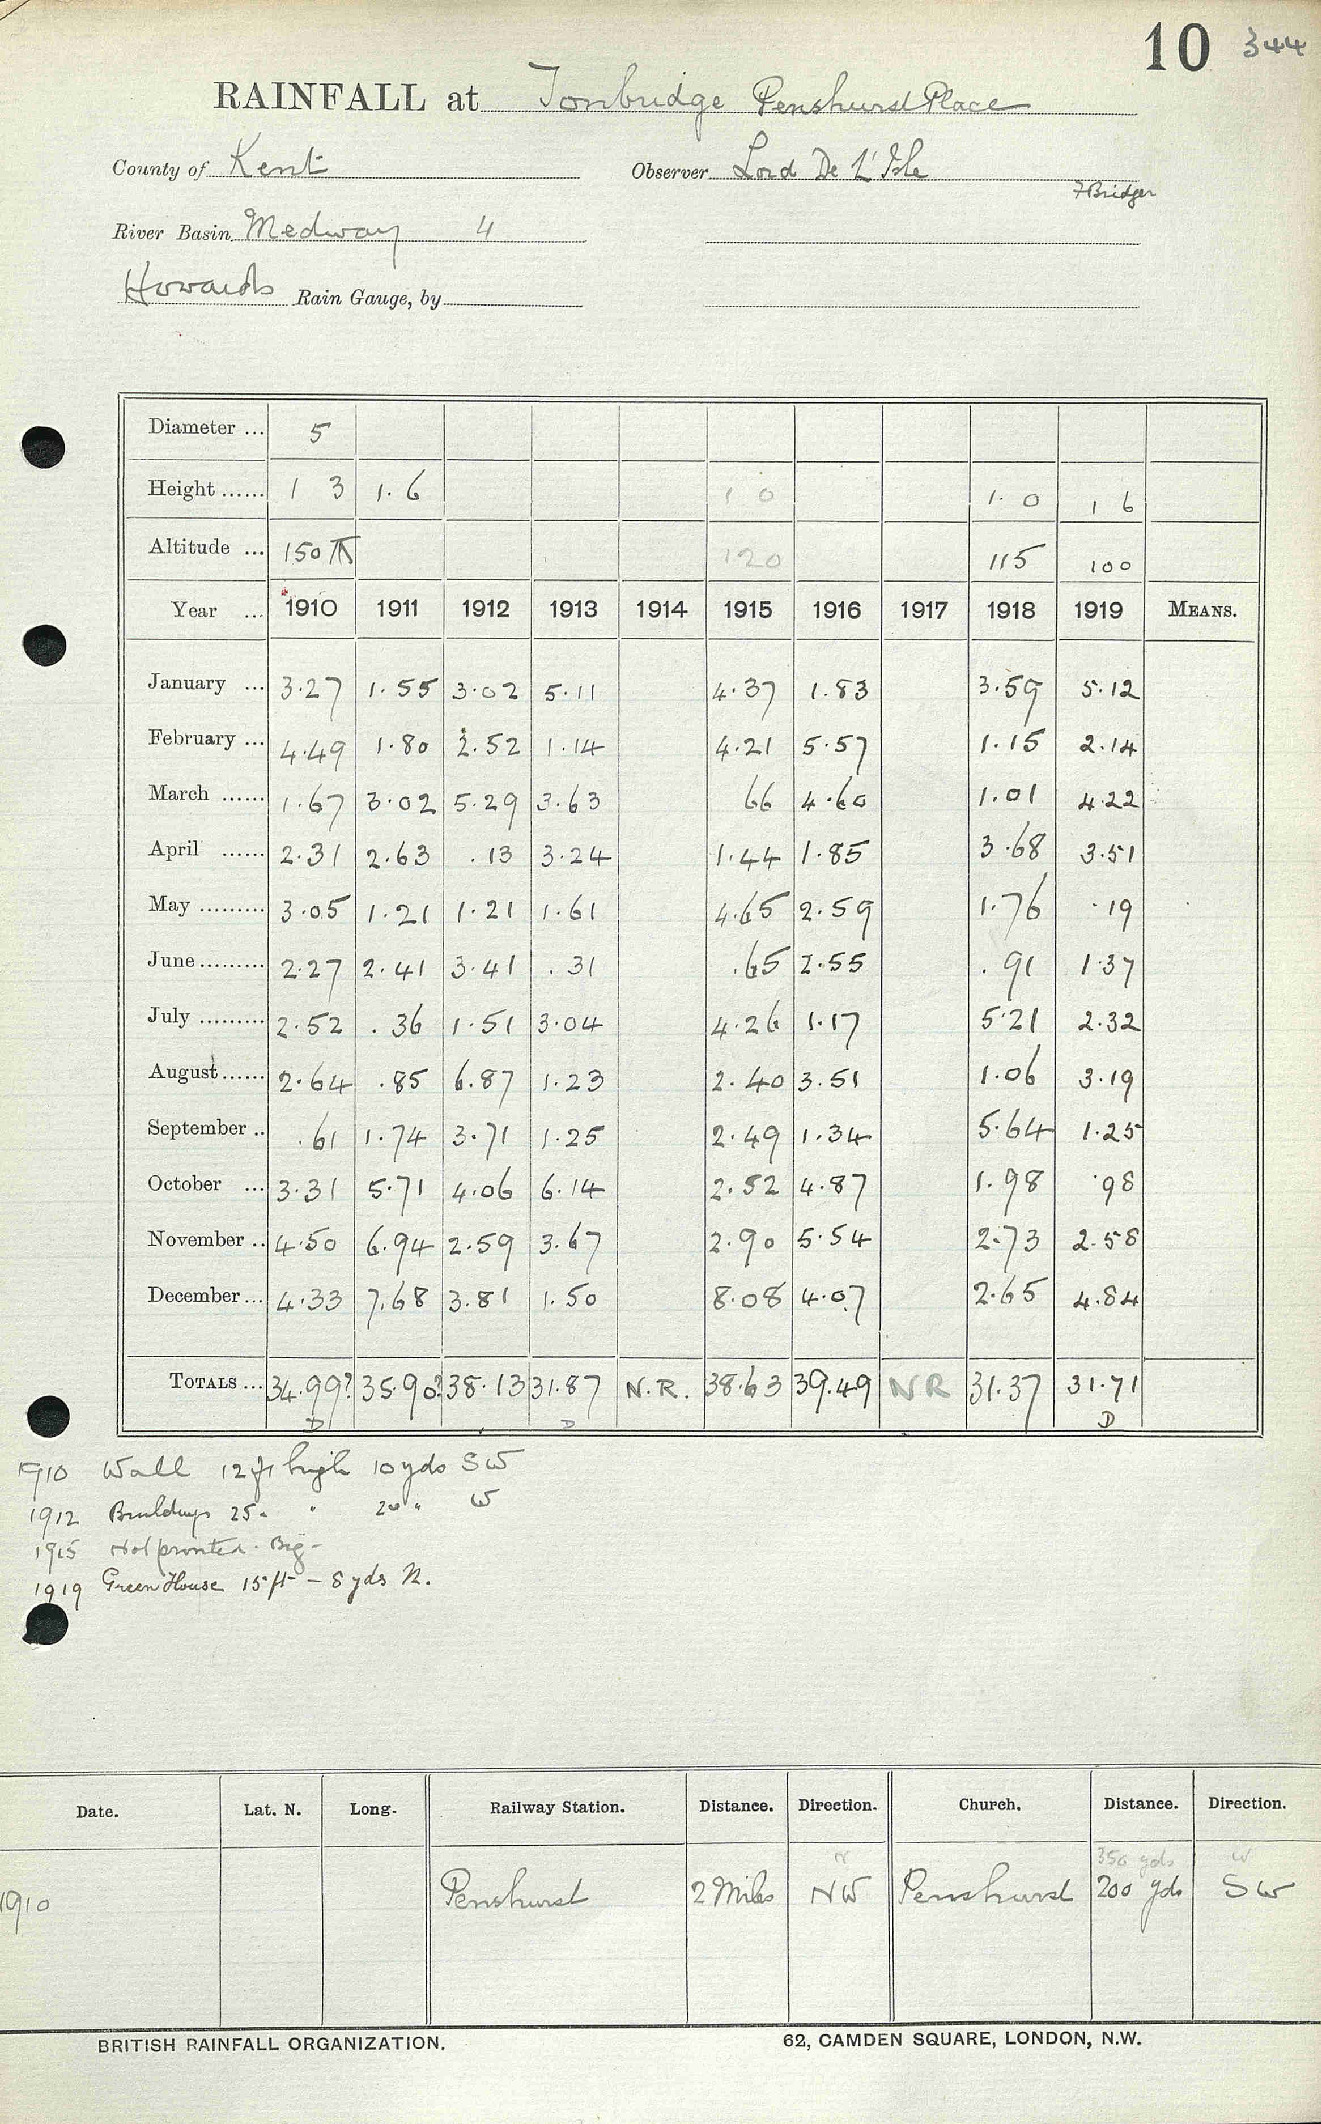 10 344
RAINFALL at Tonbridge Penshurst Place
County of Kent Observer Lord De L'Isle
F Bridger
River Basin Medway 4
Howards Rain Gauge, by
Diameter ... 5
Height ...... 1 3 1.6 1 0 1. 0 1 6
Altitude ... 150 120 115 100
Year ... 1910 1911 1912 1913 1914 1915 1916 1917 1918 1919 MEANS.
January ... 3.27 1.55 3.02 5.11 4.37 1.83 3.59 5.12
February ... 4.49 1.80 2.52 1.14 4.21 5.57 1.15 2.14
March ...... 1.67 3.02 5.29 3.63 66 4.60 1.01 4.22
April ...... 2.31 2.63 .13 3.24 1.44 1.85 3.68 3.51
May ......... 3.05 1.21 1.21 1.61 4.65 2.59 1.76 .19
June ......... 2.27 2.41 3.41 .31 .65 2.55 .91 1.37
July ......... 2.52 .36 1.51 3.04 4.26 1.17 5.21 2.32
August ...... 2.64 .85 6.87 1.23 2.40 3.51 1.06 3.19
September .. .61 1.74 3.71 1.25 2.49 1.34 5.64 1.25
October ... 3.31 5.71 4.06 6.14 2.52 4.87 1.98 .98
November .. 4.50 6.94 2.59 3.67 2.90 5.54 2.73 2.58
December ... 4.33 7.68 3.81 1.50 8.08 4.07 2.65 4.84
TOTALS ... 34.99? 35.90? 38.13 31.87 N.R. 38.63 39.49 NR 31.37 31.71
D D D
1910 Wall 12 ft high 10 yds SW
1912 Buildings 25 " " 20 " W
1915 Not printed. Big-
1919 Green House 15 ft - 8 yds N.
Date. Lat. N. Long. Railway Station. Distance. Direction. Church. Distance. Direction.
N 350 yds W
1910 Penshurst 2 Miles NW Penshurst 200 yds SW
BRITISH RAINFALL ORGANIZATION. 62, CAMDEN SQUARE, LONDON, N.W.